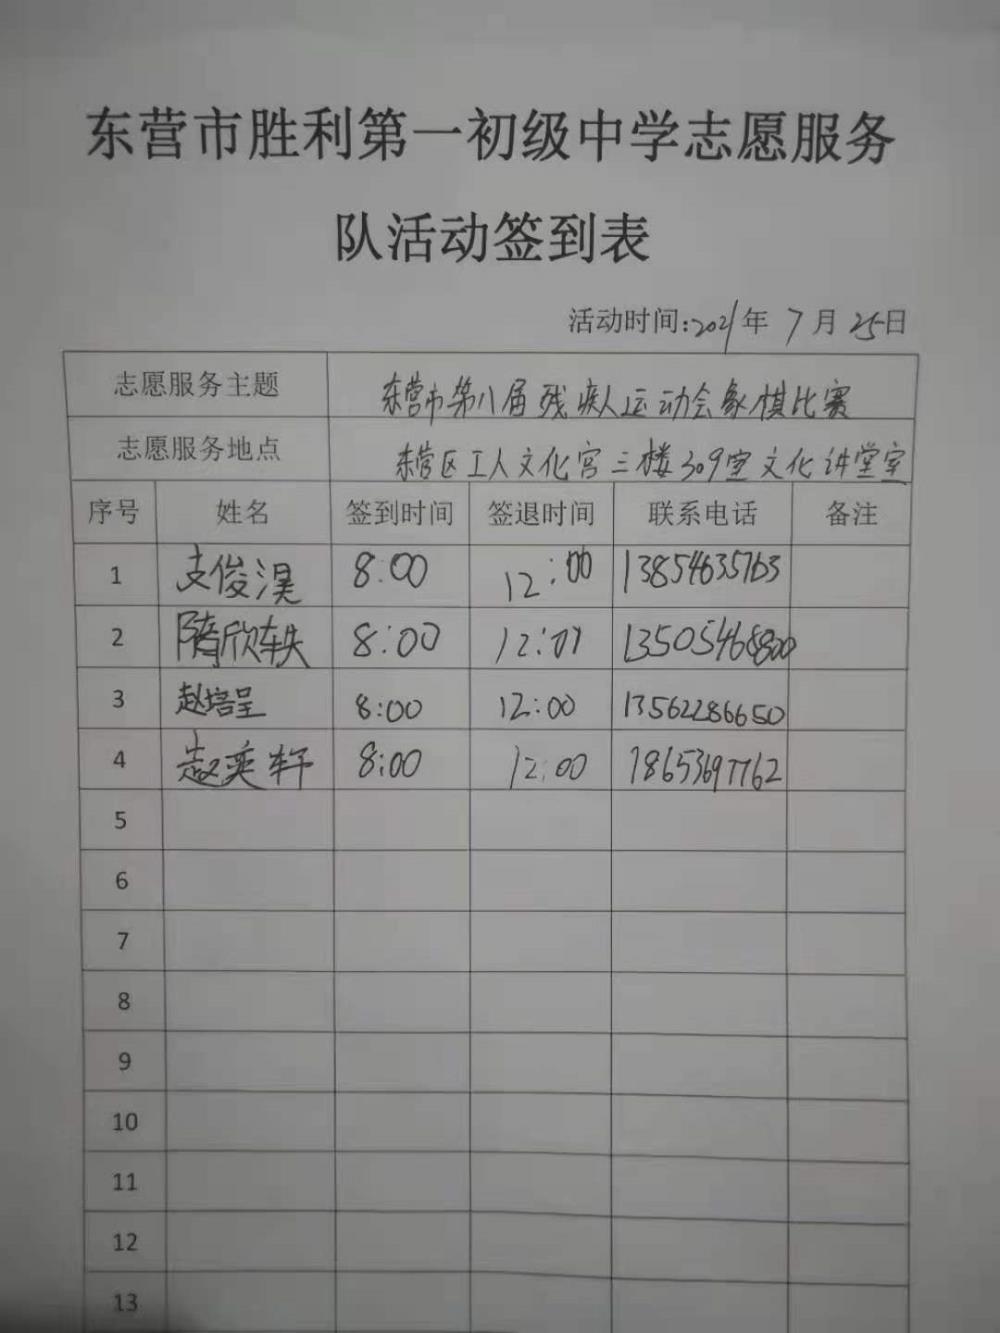 东营市胜利第一初级中学志愿服务
队活动签到表
活动时间:2021年 7月 25日
志愿服务主题 东营市第八届残疾人运动会象棋比赛
志愿服务地点 东营区工人文化宫三楼309室文化讲堂室
序号 姓名 签到时间 签退时间 联系电话 备注
1 支俊淏 8:00 12:00 13854635763
2 隋欣轶 8:00 12:01 13505468800
3 赵培呈 8:00 12:00 13562286650
4 赵奕轩 8:00 12:00 18653697762
5
6
7
8
9
10
11
12
13